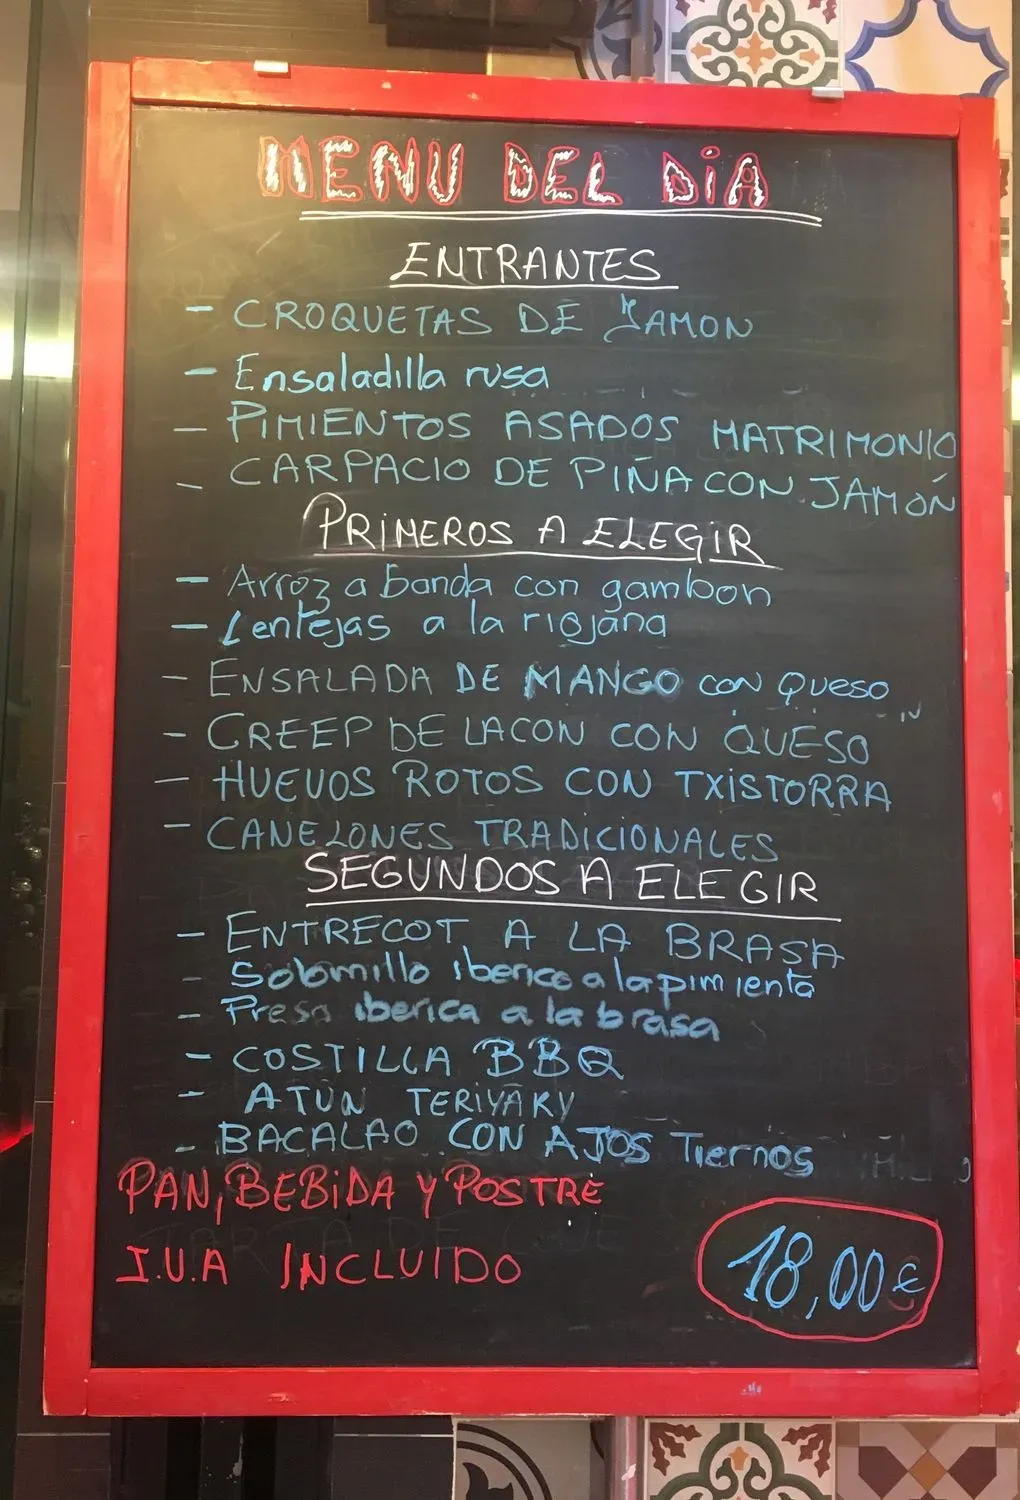 MENU DEL DiA
ENTRANTES
- CROQUETAS DE JAMON
- Ensaladilla rusa
- PIMIENTOS ASADOS MATRIMONIO
- CARPACIO DE PIÑA CON JAMÓN
PRIMEROS A ELEGIR
- Arroz a banda con gambon
- Lentejas a la riojana
- ENSALADA DE MANGO CON QUESO
- CREEP DE LACON CON QUESO
- HUEVOS ROTOS CON TXISTORRA
- CANELONES TRADICIONALES
SEGUNDOS A ELEGIR
- ENTRECOT A LA BRASA
- Solomillo iberico a la pimienta
- Presa iberica a la brasa
- COSTILLA BBQ
- ATUN TERIYAKY
- BACALAO CON AJOS Tiernos
PAN, BEBiDA Y POSTRE
I.V.A INCLUIDO
18,00€